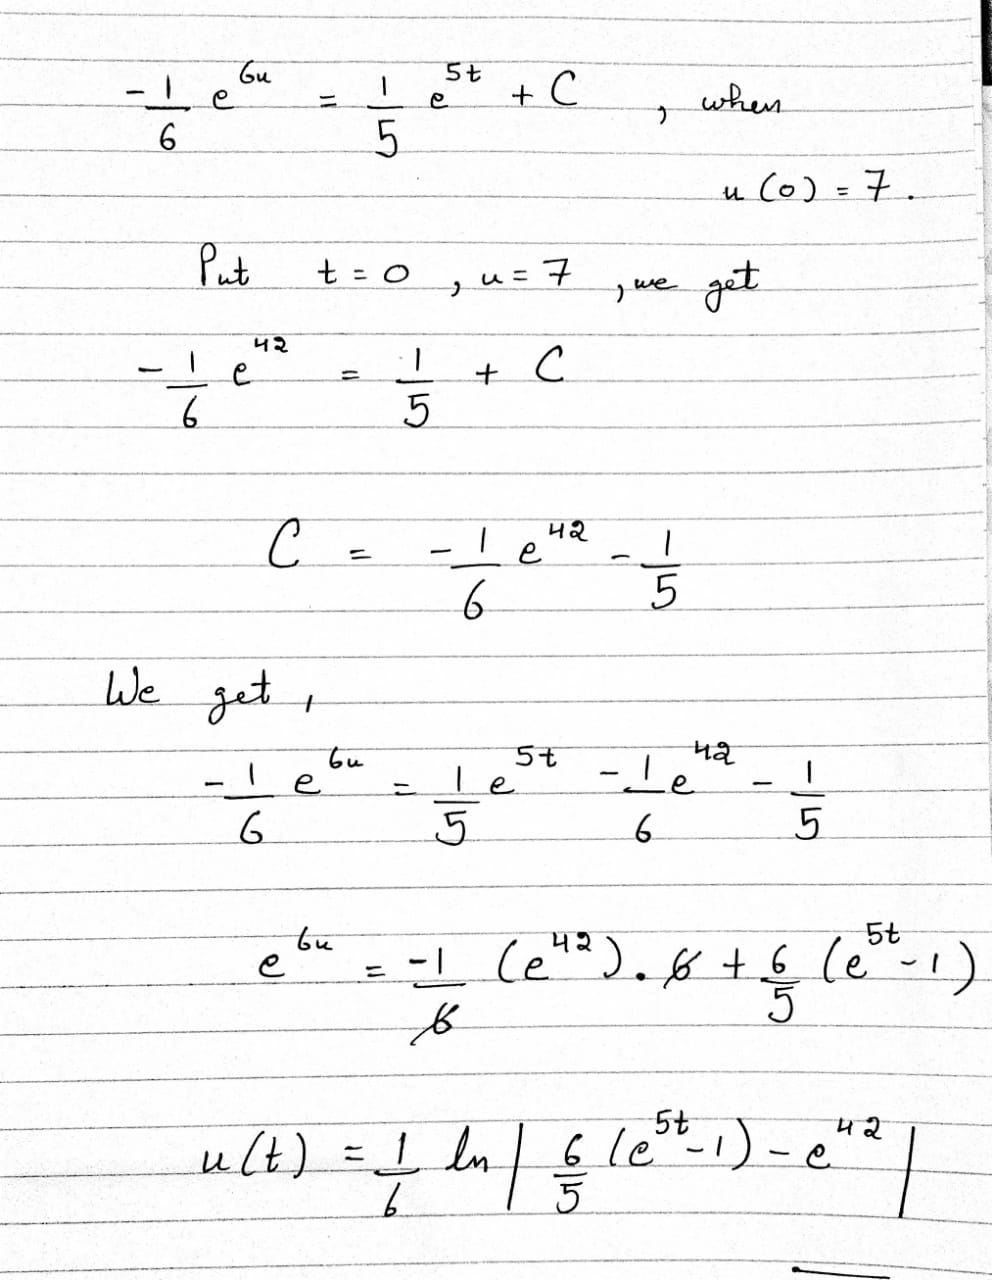 -1/6 e^{6u} = 1/5 e^{5t} + C , when
u(0) = 7.
Put t = 0 , u = 7 , we get
-1/6 e^{42} = 1/5 + C
C = -1/6 e^{42} - 1/5
We get ,
-1/6 e^{6u} = 1/5 e^{5t} - 1/6 e^{42} - 1/5
e^{6u} = -1/6 (e^{42}) . 6 + 6/5 (e^{5t} - 1)
u(t) = 1/6 ln | 6/5 (e^{5t} - 1) - e^{42} |